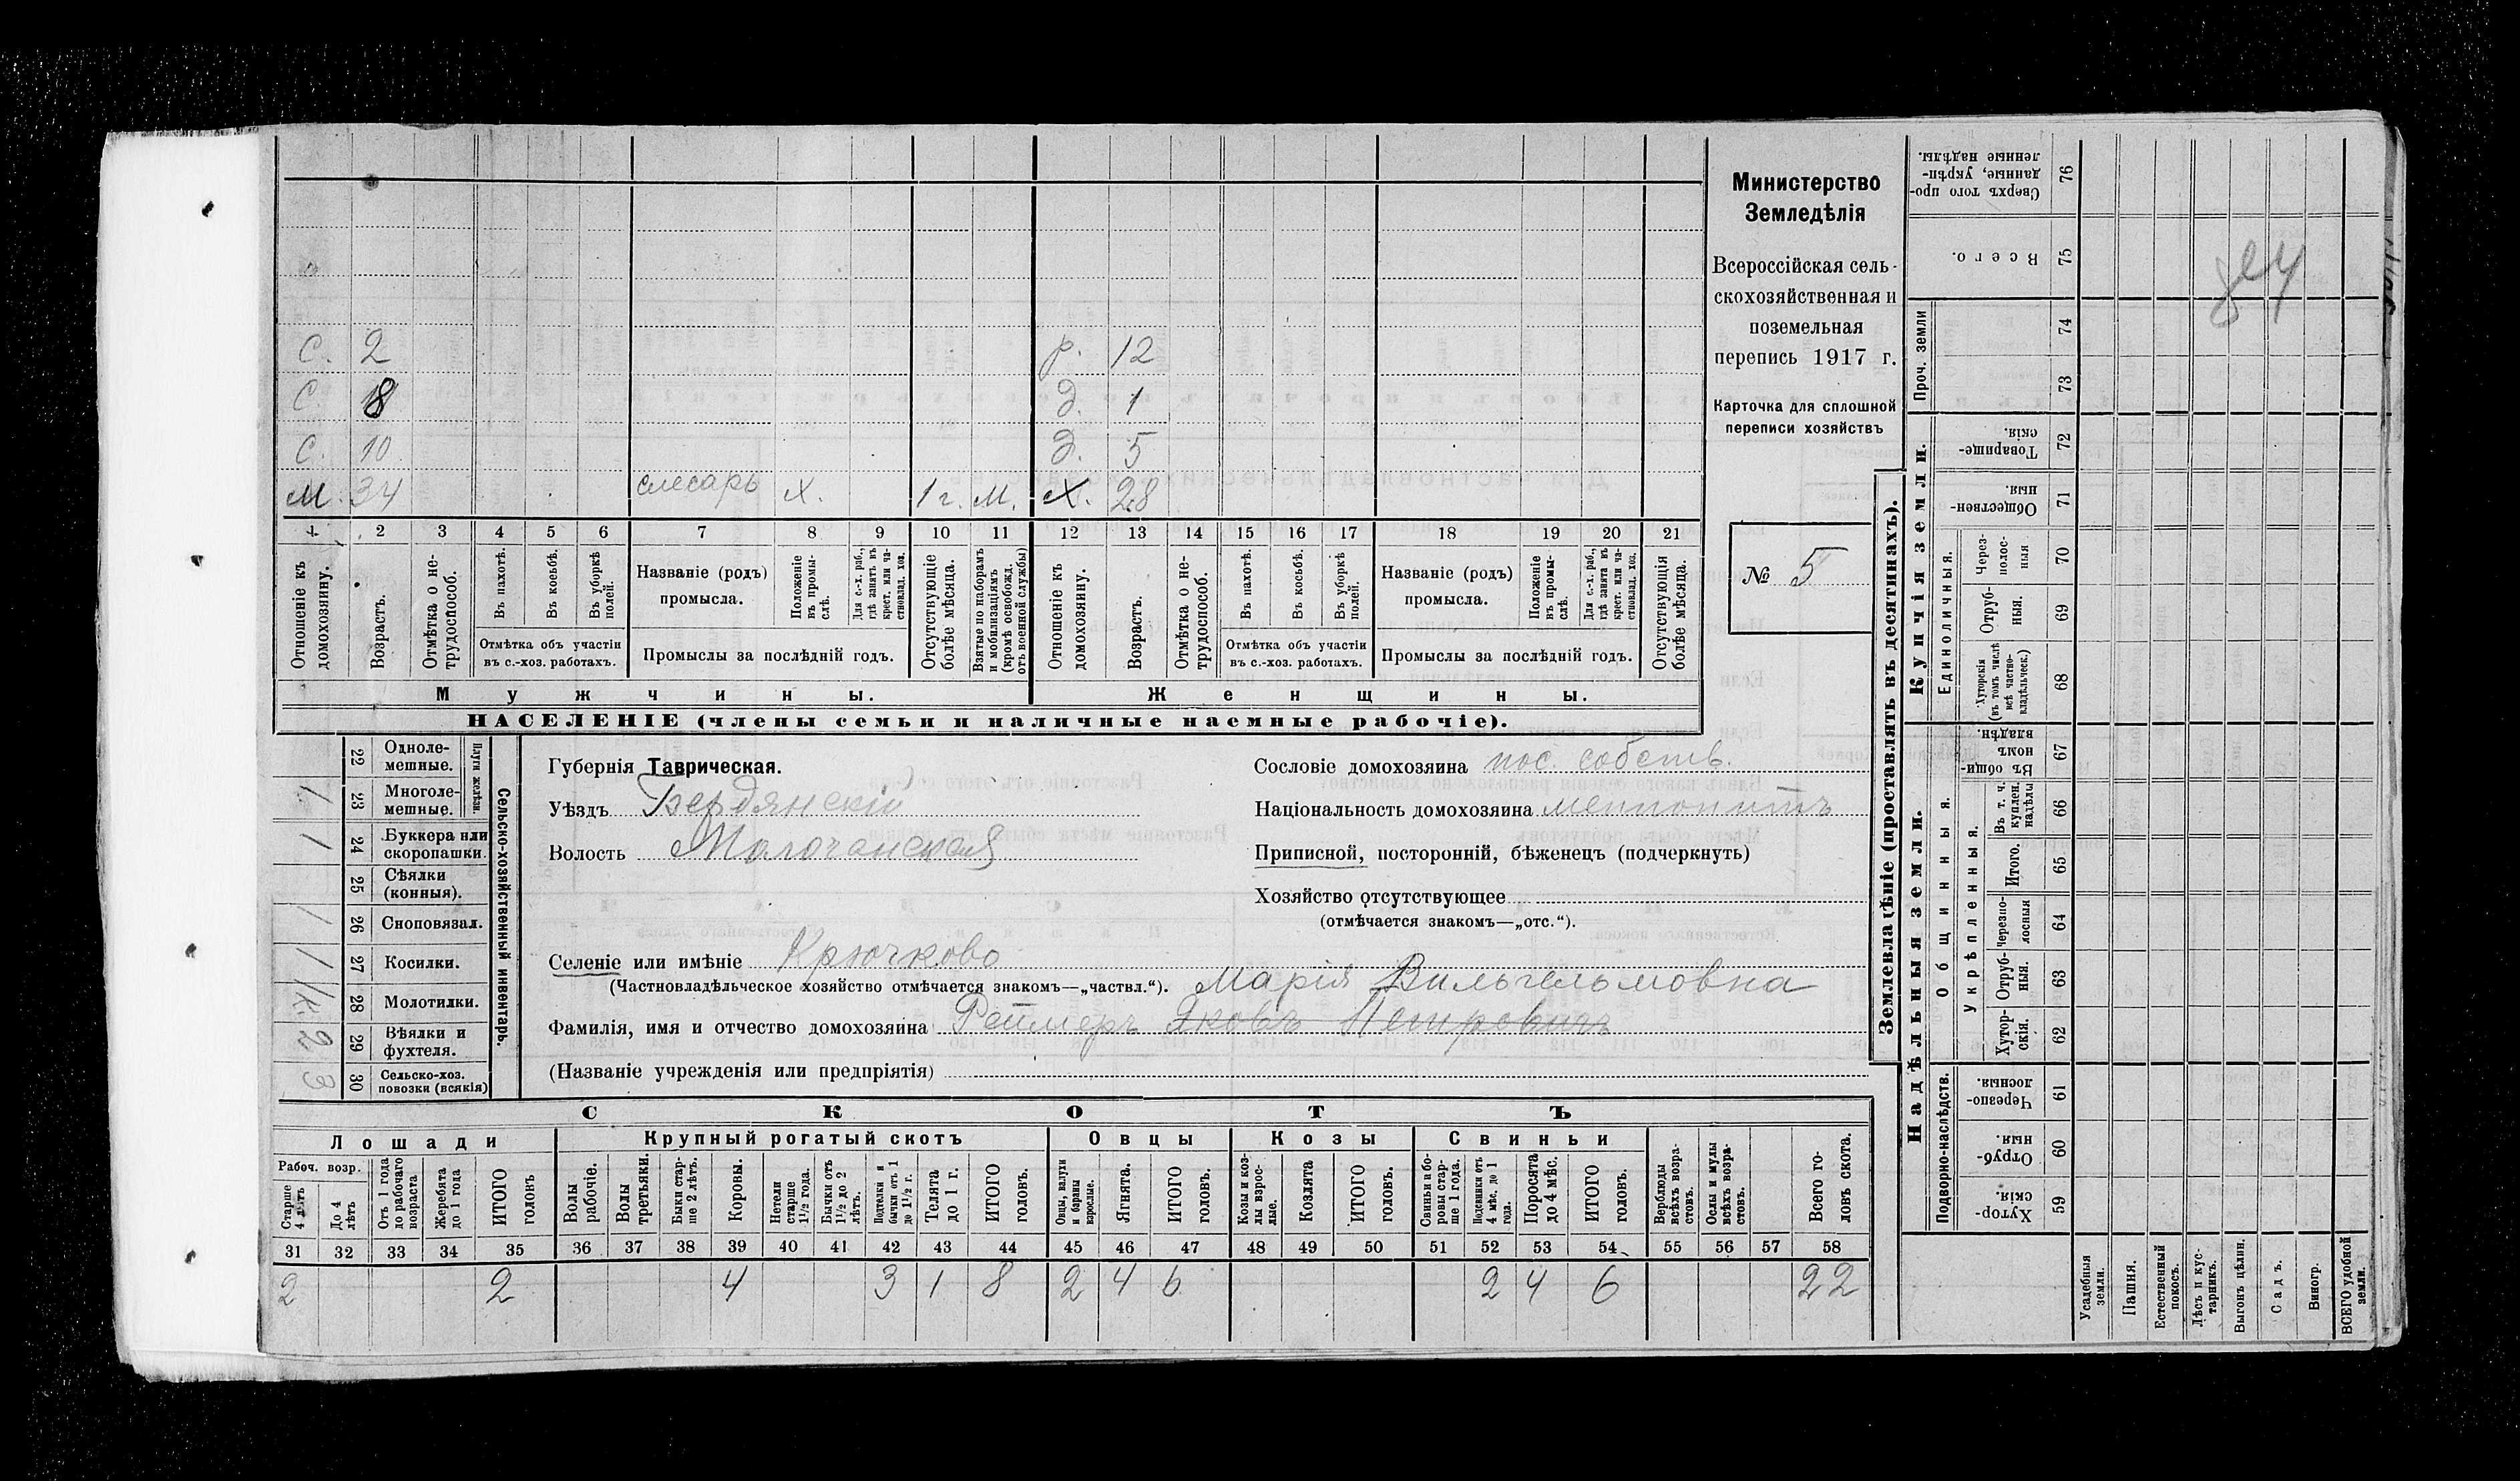 С. 2 р. 12
С 8 д. 1
С. 10 д. 5
М. 34 слесарь х. 1 г. м. х. 28
1 2 3 4 5 6 7 8 9 10 11 12 13 14 15 16 17 18 19 20 21
Отношеніе къ домохозяину.
Возрастъ.
Отмѣтка о не-
трудоспособ.
Въ пахотѣ.
Въ косьбѣ.
Въ уборкѣ
полей.
Отмѣтка объ участіи
въ с.-хоз. работахъ.
Названіе (родъ)
промысла.
Положеніе
въ промы-
слѣ.
Для с.-х. раб.,
гдѣ занятъ въ
крест. или ча-
ствовлад. хоз.
Промыслы за послѣдній годъ.
Отсутствующіе
болѣе мѣсяца.
Взятые по наборамъ
и мобилизаціямъ
(кромѣ освобожд.
отъ военной службы)
Отношеніе къ
домохозяину.
Возрастъ.
Отмѣтка о не-
трудоспособ.
Въ пахотѣ.
Въ косьбѣ.
Въ уборкѣ
полей.
Отмѣтка объ участіи
въ с.-хоз. работахъ.
Названіе (родъ)
промысла.
Положеніе
въ промы-
слѣ.
Для с.-х. раб.,
гдѣ занята въ
крест. или ча-
ствовлад. хоз.
Промыслы за послѣдній годъ.
Отсутствующія
болѣе мѣсяца.
Мужчины. Женщины.
НАСЕЛЕНІЕ (члены семьи и наличные наемные рабочіе).
Министерство
Земледѣлія
Всероссійская сель-
скохозяйственная и
поземельная
перепись 1917 г.
Карточка для сплошной
переписи хозяйствъ
№ 5
22 Одноле-
мешные.
1 23 Многоле-
мешные.
Плуги желѣзн.
1 24 Буккера или
скоропашки.
25 Сѣялки
(конныя).
1 26 Сноповязал.
1 27 Косилки.
28 Молотилки.
2 29 Вѣялки и
фухтеля.
3 30 Сельско-хоз.
повозки (всякія)
Сельско-хозяйственный инвентарь.
Губернія Таврическая.
Уѣздъ Бердянскій
Волость Молочанская
Сословіе домохозяина пос. собств.
Національность домохозяина меннонитъ
Приписной, посторонній, бѣженецъ (подчеркнуть)
Хозяйство отсутствующее
(отмѣчается знакомъ—„отс.“).
Селеніе или имѣніе Крючково
(Частновладѣльческое хозяйство отмѣчается знакомъ—„частвл.“). Марія Вильгельмовна
Фамилія, имя и отчество домохозяина Реймеръ Яковъ Петровичъ
(Названіе учрежденія или предпріятія)
СКОТЪ
Лошади Крупный рогатый скотъ Овцы Козы Свиньи
Рабоч. возр.
Старше
4 лѣтъ
До 4
лѣтъ
Отъ 1 года
до рабочаго
возраста
Жеребята
до 1 года
ИТОГО
головъ
Волы
рабочіе.
Волы
третьяки.
Быки стар-
ше 2 лѣтъ.
Коровы.
Нетели
старше
1½ года.
Бычки отъ
1½ до 2
лѣтъ.
Подтелки и
бычки отъ 1
до 1½ г.
Телята
до 1 г.
ИТОГО
головъ.
Овцы, валухи
и бараны
взрослые.
Ягнята.
ИТОГО
головъ.
Козы и коз-
лы взрос-
лые.
Козлята
ИТОГО
головъ.
Свиньи и бо-
ровы стар-
ше 1 года.
Подсвинки отъ
4 мѣс. до 1
года.
Поросята
до 4 мѣс.
ИТОГО
головъ.
Верблюды
всѣхъ возра-
стовъ.
Ослы и мулы
всѣхъ возра-
стовъ.
Всего го-
ловъ скота.
31 32 33 34 35 36 37 38 39 40 41 42 43 44 45 46 47 48 49 50 51 52 53 54 55 56 57 58
2 2 4 3 1 8 2 4 6 2 4 6 22
Землевладѣніе (проставлять въ десятинахъ).
Купчія земли.
Надѣльныя земли.
Сверхъ того про-
данные, укрѣп-
ленные надѣлы.
76
Всего.
75
Проч. земли
74
73
Товарище-
скія.
72
Обществен-
ныя.
71
Единоличныя.
Через-
полос-
ныя
70
Отруб-
ныя.
69
Хуторскія
(въ томъ числѣ
всѣ частно-
владѣльческ.)
68
Въ общин-
номъ
владѣн.
67
Общинныя.
Укрѣпленныя.
Въ т. ч.
куплен.
надѣлы
66
Итого.
65
Черезпо-
лосныя
64
Отруб-
ныя.
63
Хутор-
скія.
62
Подворно-наслѣдств.
Черезпо-
лосныя.
61
Отруб-
ныя.
60
Хутор-
скія.
59
Усадебныя
земли.
Пашня.
Естественный
покосъ.
Лѣсъ и кус-
тарникъ.
Выгонъ цѣлин.
Садъ.
Виногр.
ВСЕГО удобной
земли.